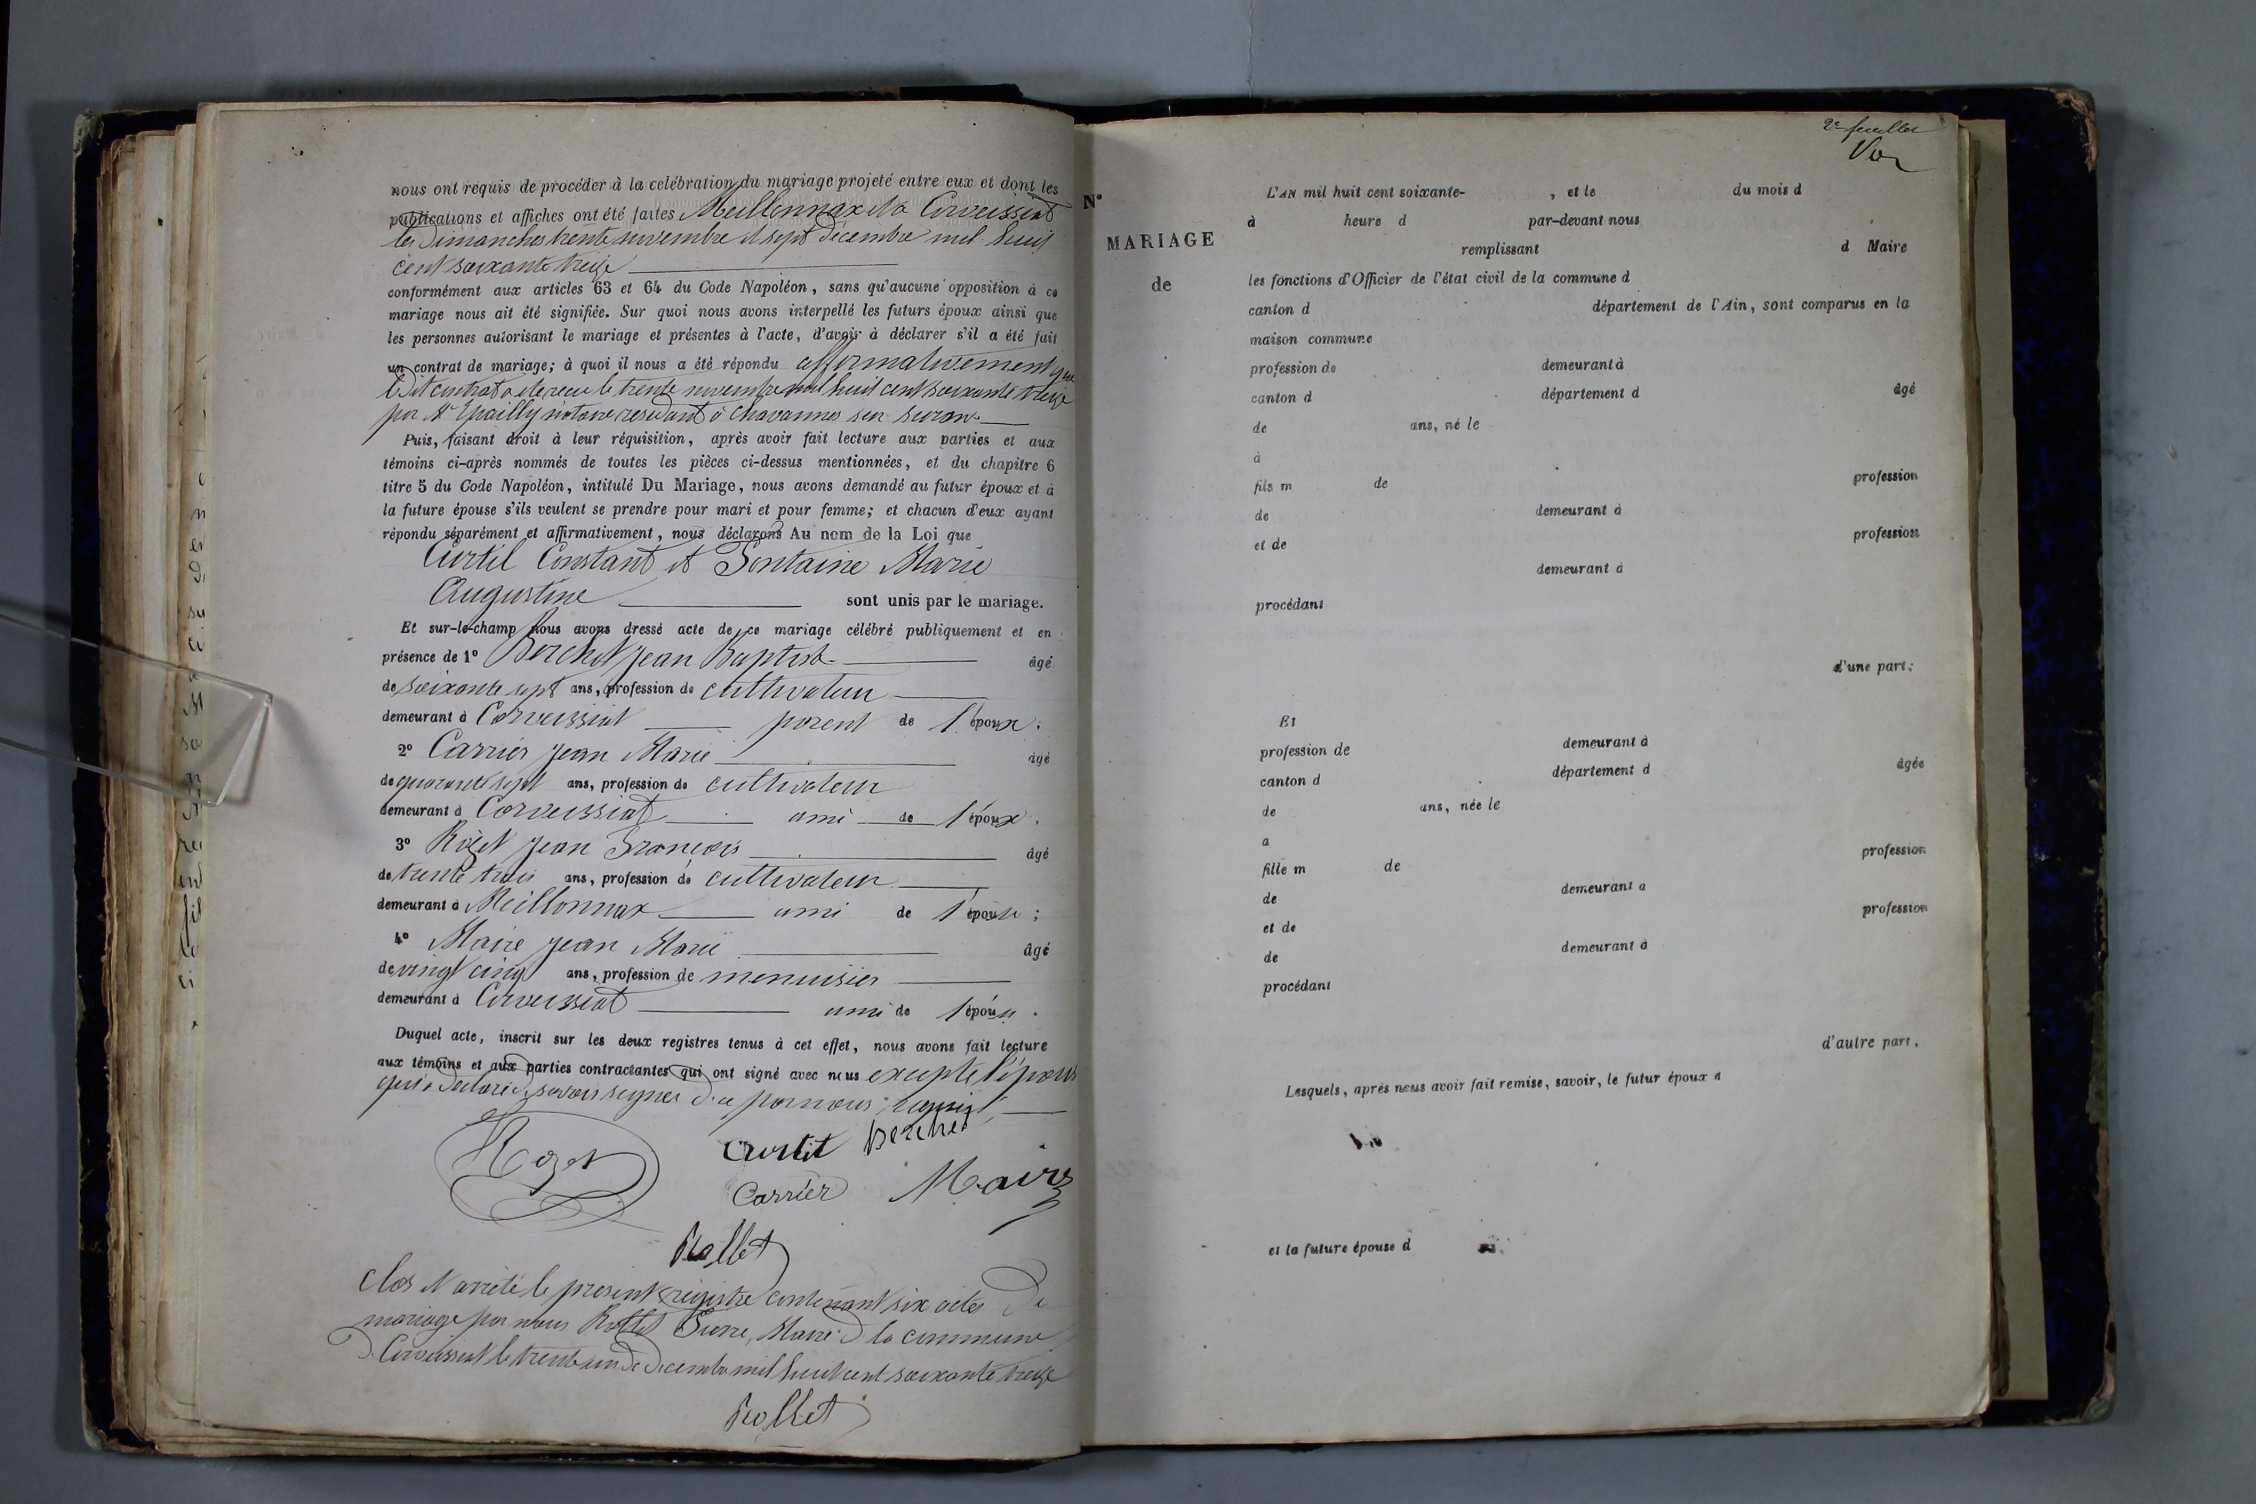 nous ont requis de procéder à la celébration du mariage projeté entre eux et dont les
publications et affiches ont été faites Meillonnax et à Corveissiat
les Dimanches trente novembre et sept décembre mil huit
cent soixante treize
conformément aux articles 63 et 64 du Code Napoléon, sans qu'aucune opposition à ce
mariage nous ait été signifiée. Sur quoi nous avons interpellé les futurs époux ainsi que
les personnes autorisant le mariage et présentes à l'acte, d'avoir à déclarer s'il a été fait
un contrat de mariage; à quoi il nous a été répondu affirmativement que
le dit contrat a été recu le trente novembre mil huit cent soixante treize
par Mr notaire residant à Chavannes sur suran
Puis, faisant droit à leur réquisition, après avoir fait lecture aux parties et aux
témoins ci-après nommés de toutes les pièces ci-dessus mentionnées, et du chapitre 6
titre 5 du Code Napoléon, intitulé Du Mariage, nous avons demandé au futur époux et à
la future épouse s'ils veulent se prendre pour mari et pour femme; et chacun d'eux ayant
répondu séparément et affirmativement, nous déclarons Au nom de la Loi que
Curtil Constant et Fontaine Marie
Augustine sont unis par le mariage.
Et sur-le-champ nous avons dressé acte de ce mariage célébré publiquement et en
présence de 1° Berchet Jean Baptiste âgé
de soixante sept ans, profession de cultivateur
demeurant à Corveissiat parent de l'époux.
2° Carrier Jean Marie âgé
de quarante sept ans, profession de cultivateur
demeurant à Corveissiat ami de l'époux.
3° Rozet Jean François âgé
de trente trois ans, profession de cultivateur
demeurant à Meillonnax ami de l'épouse;
4° Maire Jean Marie âgé
de vingt cinq ans, profession de menuisier
demeurant à Corveissiat ami de l'épouse.
Duquel acte, inscrit sur les deux registres tenus à cet effet, nous avons fait lecture
aux témoins et aux parties contractantes qui ont signé avec nous excepté l'épouse
qui a déclaré ne savoir signer de ce par nous requise
Rozet Curtil Berchet
Carrier Maire
Rollet
Clos et arrêté le présent registre contenant six actes de
mariage par nous Rollet Pierre, Maire de la commune
de Corveissiat le trente un de décembre mil huit cent soixante treize
Rollet
2e feuillet
N°
MARIAGE
de
L'AN mil huit cent soixante- , et le du mois d
à heure d par-devant nous
remplissant d Maire
les fonctions d'Officier de l'état civil de la commune d
canton d département de l'Ain, sont comparus en la
maison commune
profession de demeurant à
canton d département d âgé
de ans, né le
à
fils m de profession
de demeurant à
et de profession
demeurant à
procédant
d'une part;
Et
profession de demeurant à
canton d département d âgée
de ans, née le
a
fille m de profession
de demeurant a
et de profession
de demeurant à
procédant
d'autre part.
Lesquels, après nous avoir fait remise, savoir, le futur époux d
et la future épouse d